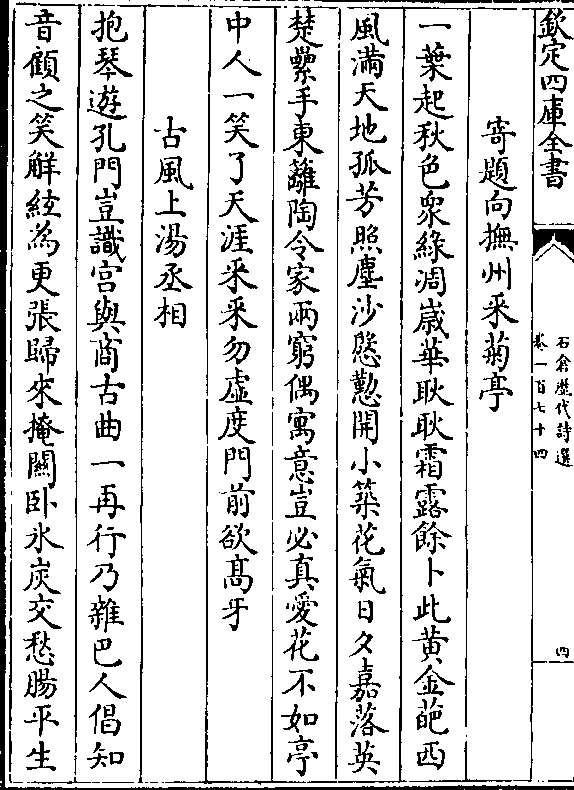 欽定四庫全書
石倉歷代詩選
卷一百七十四
四
寄題向撫州采菊亭
一葉起秋色衆綠凋嵗華耿耿霜露餘卜此黄金葩西
風滿天地孤芳照塵沙慇懃開小築花氣日夕嘉落英
楚纍手東籬陶令家兩窮偶寓意豈必真愛花不如亭
中人一笑了天涯采采勿虚度門前欲髙牙
古風上湯丞相
抱琴遊孔門豈識宮與商古曲一再行乃雜巴人倡知
音顧之笑解絃為更張歸來掩關卧氷炭交愁腸平生